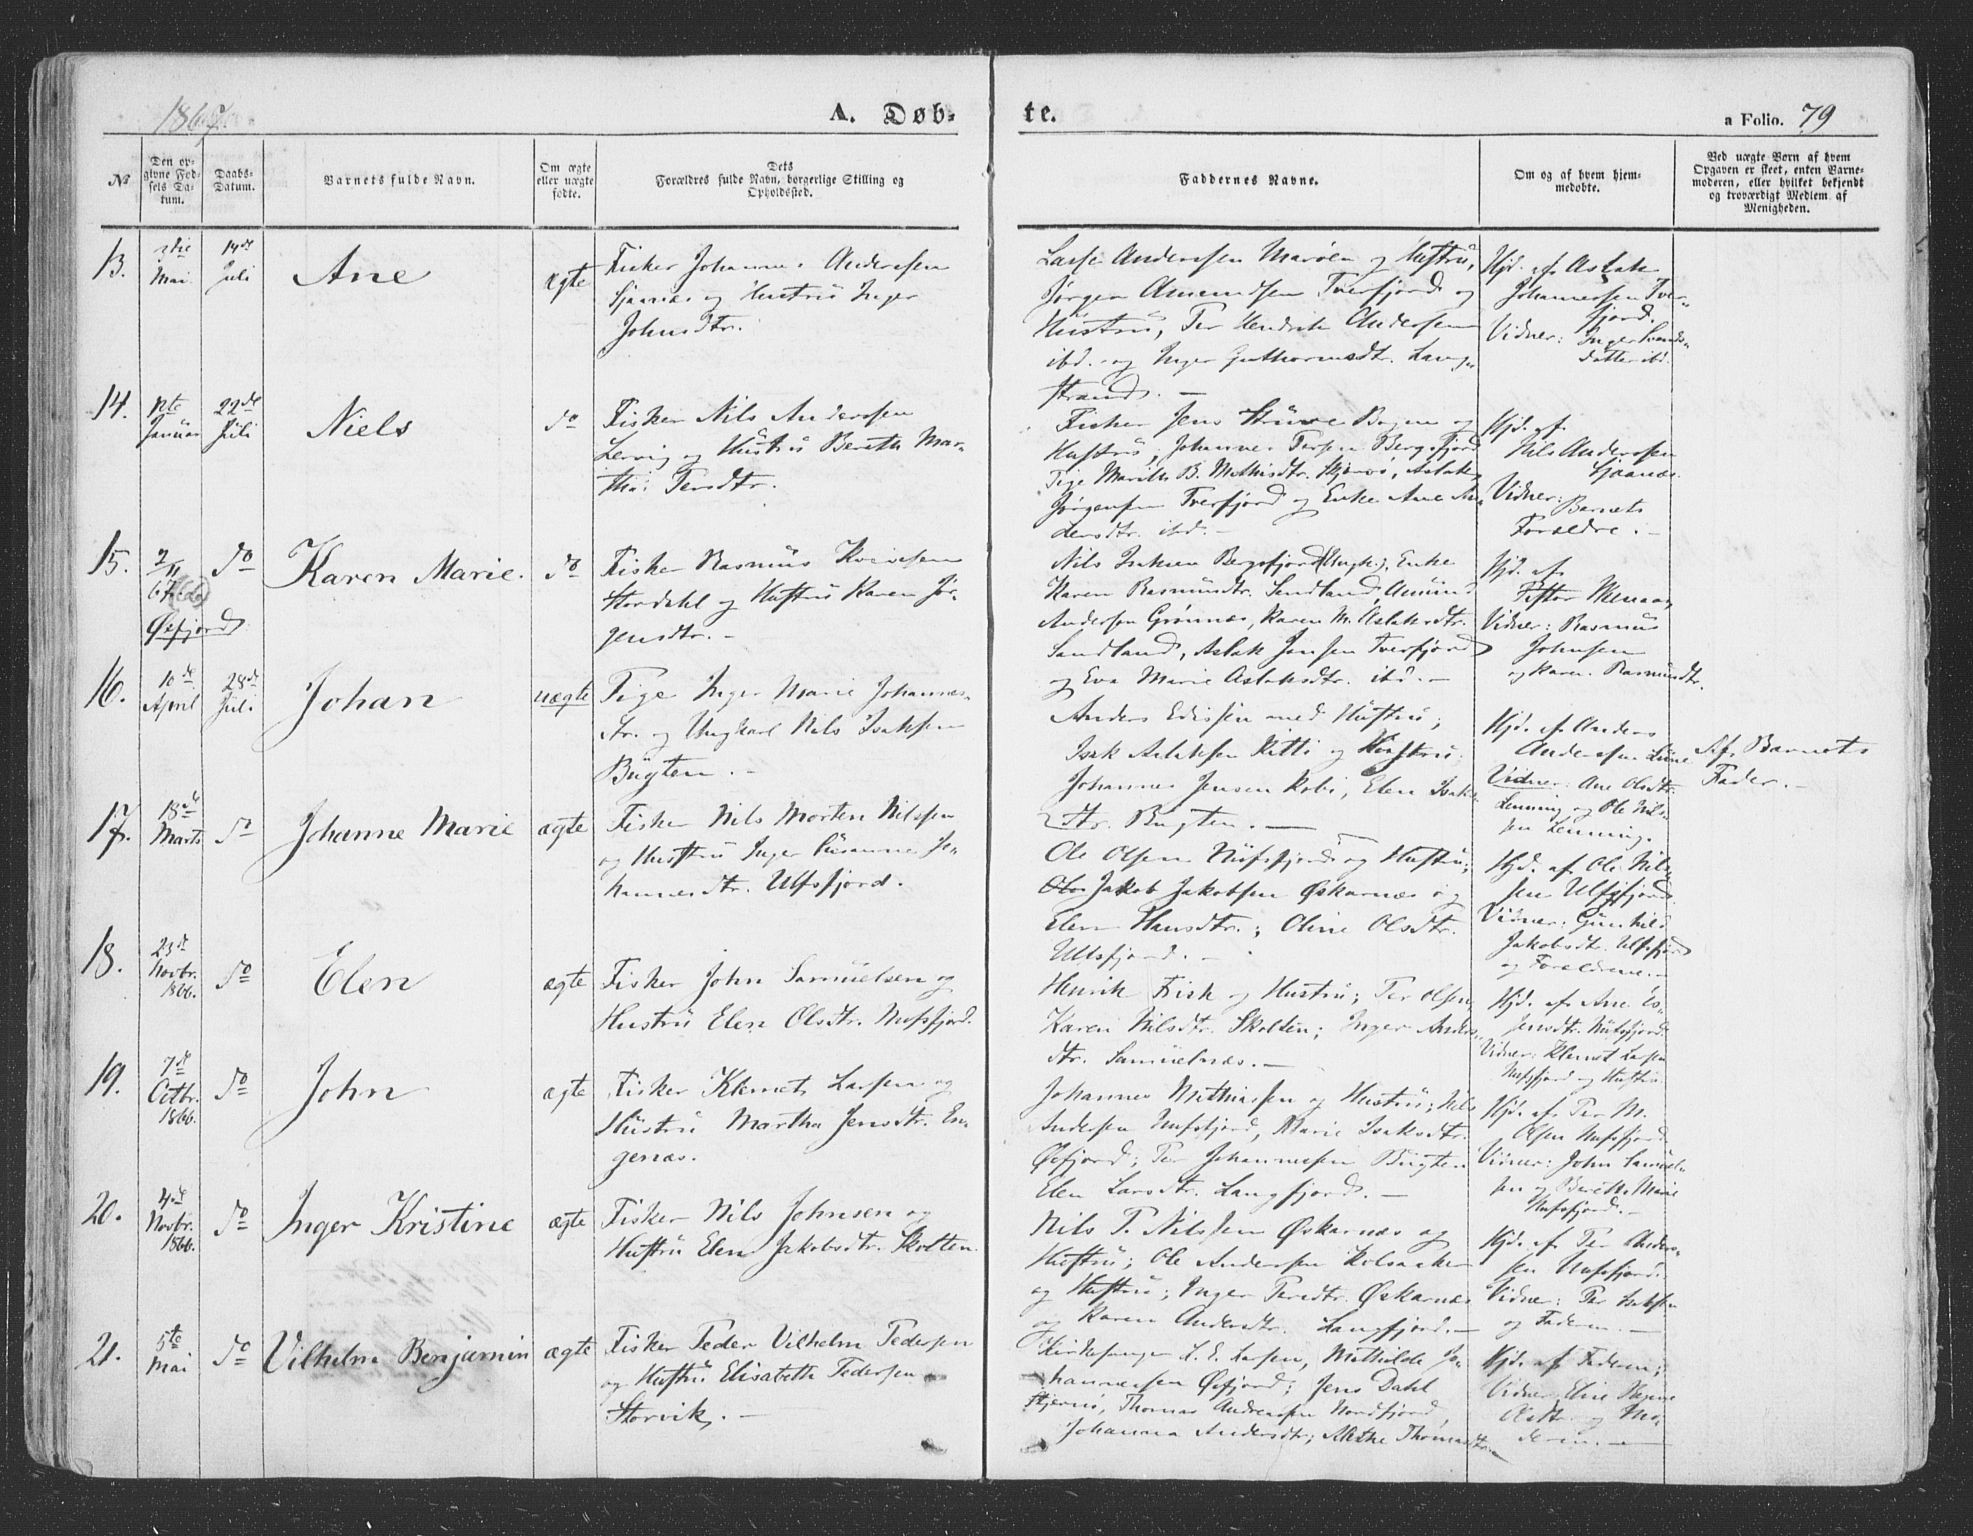 1867.
A. Døb-
te.
a Folio. 79
No
Den op-
givne Fød-
sels Da-
tum.
Daabs-
Datum.
Barnets fulde Navn.
Om ægte
eller uægte
fødte.
Dets
Forældres fulde Navn, borgerlige Stilling og
Opholdssted.
Faddernes Navne.
Om og af hvem hjem-
medøbte.
Ved uægte Børn af hvem
Opgaven er skeet, enten Barne-
moderen, eller hvilket bekjendt
og troværdigt Medlem af
Menigheden.
13.
3die
Mai
14de
Juli
Ane
ægte
Fisker Johannes Anderssen
Sjaanæs og Hustru Inger
Johnsdtr.
Lasse Anderssen Marøen og Hustru,
Jørgen Amundsen Tverfjord og
Hustru, Per Hendrik Andersen
ibd. og Inger Guthormsdtr. Lang-
strand. —
Hjd. af Aslak
Johannessen Tver-
fjord.
Vidner: Inger
datter ibd.
14.
Januar
22de
Juli
Niels
do
Fisker Nils Anderssen
Lervig og Hustru Bereth Mar-
tha Persdtr.
Fisker Jens Struve Bogen og
Hustru, Johannes Persen Bergsfjord
Pige Marith B. Mathisdtr. Stjernø, Aslak
Jørgensen Tverfjord og Enke Ane An-
dersdtr. ibd. —
Hjd. af
Nils Anderssen
Sjaanæs.
Vidner:
Barnets
Forældre. —
15.
2/11
67 (66)
Øxfjord
do
Karen Marie.
do
Fisker Rasmus
Stordahl og Hustru Karen Jør-
gensdtr. —
Nils Isaksen Bergsfjord (Ungk.), Enke
Karen Rasmusdtr. Sandland Amund
Andersen Grønnæs, Karen M. Aslaksdtr.
Sandland, Aslak Jansen Tverfjord
og Eva Marie Aslaksdtr. ibd. —
Hjd. af
Vidner: Rasmus
Johnsen
og Karen Rasmusdtr.
16.
10de
April
28de
Juli
Johan
uægte
Pige Inger Marie Johannes-
dtr. og Ungkarl Nils Isaksen
Bugten. —
Anders Edissen med Hustru;
Isak Aslaksen Kitti og Hustru;
Johannes Jensen Kobi, Elen Isaks-
dtr. Bugten. —
Hjd. af Anders
Anderssen
Vidner: Ane Olsdtr.
Lenning og Ole Nils-
sen Lenning.
Af Barnets
Fader. —
17.
18de
Marts
do
Johanne Marie
ægte
Fisker Nils Morten Nilssen
og Hustru Inger Susanne Jo-
hannesdtr. Ulfsfjord.
Ole Olsen Nufsfjord og Hustru;
Jakob Jakobsen Øskarnæs og
Elen Hansdtr.; Oline Olsdtr.
Ulfsfjord. —
Hjd. af Ole Nils-
sen Ulfsfjord
Vidner: Gunhild
Jakobsdtr. Ulfsfjord
og Forældrene. —
18.
23de
Novbr.
1866.
do
Elen
ægte
Fisker John Samuelsen og
Hustru Elen Olsdtr. Nufsfjord.
Henrik Frisk og Hustru; Per Olsen,
Karen Nilsdtr. Skolten; Inger Anders-
dtr. Samuelnæs. —
Hjd. af Ane Es-
jensdtr. Nufsfjord
Vidner: Klemet Larsen
Nufsfjord og Hustru.
19.
7de
Octbr.
1866.
do
John
ægte
Fisker Klemet Larsen og
Hustru Martha Jensdtr. En-
genæs.
Johannes Mathiassen og Hustru; Nils
Andersen Nufsfjord, Marie Isaksdtr.
Øxfjord; Per Johannessen Bugten
Elen Larsdtr. Langfjord. —
Hjd. af Per M.
Olsen Nufsfjord
Vidner: John Samuel-
sen og Berethe Marie
Nufsfjord. —
20.
4de
Novbr.
1866.
do
Inger Kristine
ægte
Fisker Nils Johnsen og
Hustru Elen Jakobsdtr. Skolten.
Nils P. Nilssen Øskarnæs og
Hustru; Ole Anderssen Kolsaaker
og Hustru; Inger Persdtr. Øskarnæs
og Karen Andersdtr. Langfjord. —
Hjd. af Per Anders-
sen Nufsfjord.
Vidner: Per Isaksen
og Faderen. —
21.
5te
Mai
do
Vilhelm Benjamin
ægte
Fisker Peder Vilhelm Pedersen
og Hustru Elisabeth Pedersen
Storvik. —
Kirkesanger L. E. Larsen, Mathilde Jo-
hannessen Øxfjord; Jens Dahl
Stjernø, Thomas Andreassen Nordfjord,
Johanna Andersdtr; Alethe Thomasdtr. —
Hjd. af Faderen;
Vidner: Eline
Olsdtr. og Mo-
deren. —